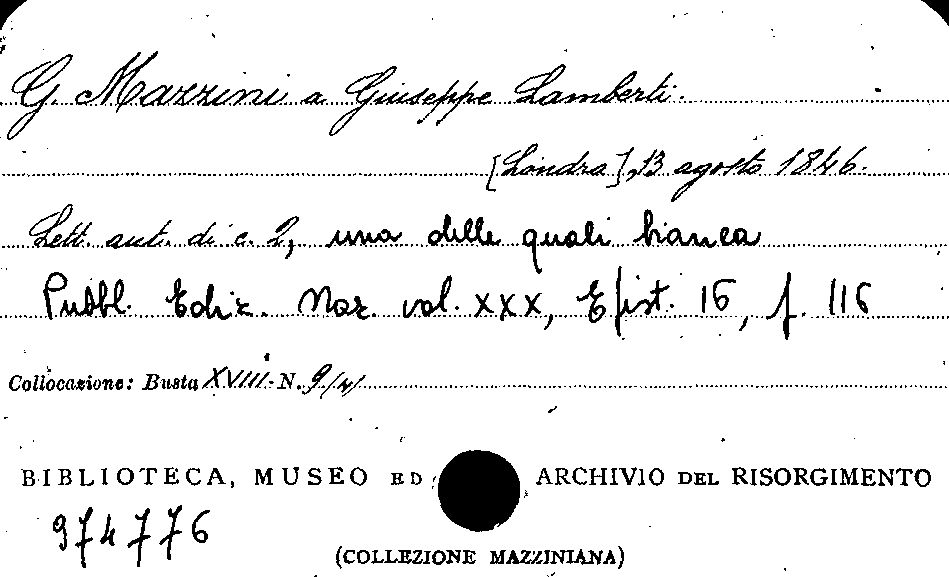 G. Mazzini a Giuseppe Lamberti.
[Londra], 13 agosto 1846.
Lett. aut. di c. 2, una delle quali bianca
Pubbl. Ediz. Naz. vol. XXX, Epist. 16, p. 116
Collocazione: Busta XVIII N. 9/41
BIBLIOTECA, MUSEO ED ARCHIVIO DEL RISORGIMENTO
974776
(COLLEZIONE MAZZINIANA)